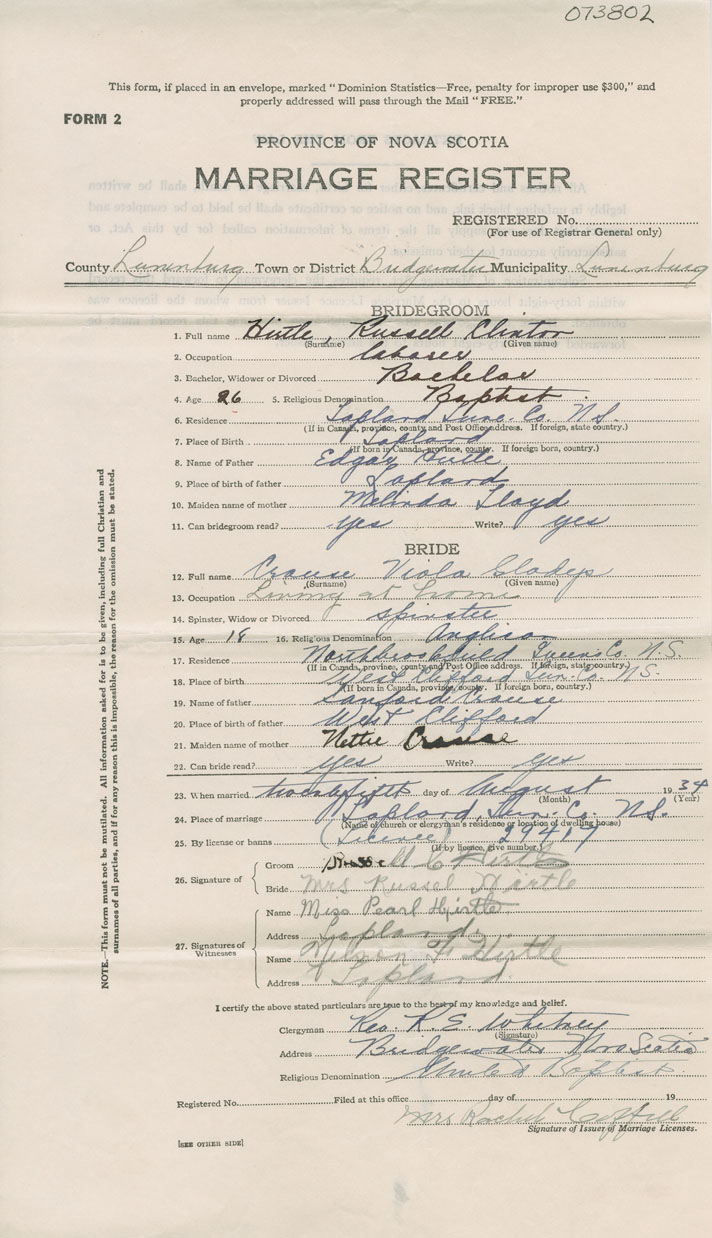 073802
This form, if placed in an envelope, marked "Dominion Statistics—Free, penalty for improper use $300," and
properly addressed will pass through the Mail "FREE."
FORM 2
PROVINCE OF NOVA SCOTIA
MARRIAGE REGISTER
REGISTERED No.
(For use of Registrar General only)
County Lunenburg Town or District Bridgewater Municipality Lunenburg
BRIDEGROOM
1. Full name Hirtle, Russell Clinton
(Surname) (Given name)
2. Occupation laborer
3. Bachelor, Widower or Divorced Bachelor
4. Age 26 5. Religious Denomination Baptist
6. Residence Lapland Lun. Co. N.S.
(If in Canada, province, county and Post Office address. If foreign, state country.)
7. Place of Birth Lapland
(If born in Canada, province, county. If foreign born, country.)
8. Name of Father Edgar Hirtle
9. Place of birth of father Lapland
10. Maiden name of mother Melinda Lloyd
11. Can bridegroom read? yes Write? yes
BRIDE
12. Full name Crouse Viola Gladys
(Surname) (Given name)
13. Occupation Living at home
14. Spinster, Widow or Divorced spinster
15. Age 18 16. Religious Denomination Anglican
17. Residence Northbrookfield Queens Co. N.S.
(If in Canada, province, county and Post Office address. If foreign, state country.)
18. Place of birth West Clifford Lun. Co. N.S.
(If born in Canada, province, county. If foreign born, country.)
19. Name of father Sanford Crouse
20. Place of birth of father West Clifford
21. Maiden name of mother Nettie Crouse
22. Can bride read? yes Write? yes
23. When married twenty fifth day of August 1934
(Month) (Year)
24. Place of marriage Lapland, Lun. Co. N.S.
(Name of church or clergyman's residence or location of dwelling house)
25. By license or banns (Licence) 29417
(If by licence, give number)
26. Signature of
Groom C Hirtle
Bride Mrs Russel Hirtle
27. Signatures of Witnesses
Name Miss Pearl Hirtle
Address Lapland
Name F Hirtle
Address Lapland
I certify the above stated particulars are true to the best of my knowledge and belief.
Clergyman Rev. R. S. Whitney
(Signature)
Address Bridgewater Nova Scotia
Religious Denomination United Baptist
Registered No. Filed at this office day of 19
Mrs Rachel
Signature of Issuer of Marriage Licenses.
[SEE OTHER SIDE]
NOTE.—This form must not be mutilated. All information asked for is to be given, including full Christian and
surnames of all parties, and if for any reason this is impossible, the reason for the omission must be stated.